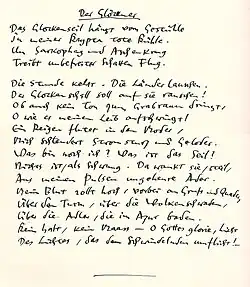 Der Glöckner
Das Glockenseil hängt vom Gestühle
In meiner Krypten tote Kühle.
Um Sarkophag und Aschenkrug
Treibt unbefreiter Schatten Flug.
Die Stunde kehrt. Die Länder lauschen.
Der Glockenschall soll auf sie rauschen!
Ob auch kein Ton zum Grabraum dringt,
O wie es meinen Leib aufschwingt!
Ein Reigen flirrt in den Moder,
Mich schleudert Sturm und Geloder.
Was bin noch ich? Was ist das Seil?
Nichts ist, als Schwung. Da wankt sie, steil,
Aus meinen Pulsen ungeheure Ader.
Mein Blut rollt hoch, vorbei an Gruft und Quader,
Über den Turm, über die Wolkenschwaden,
Über die Adler, die im Azur baden.
Kein Halt, kein Maass – O Gottes glorie,
Des Lichtes, das den Schwindelnden umfließt!